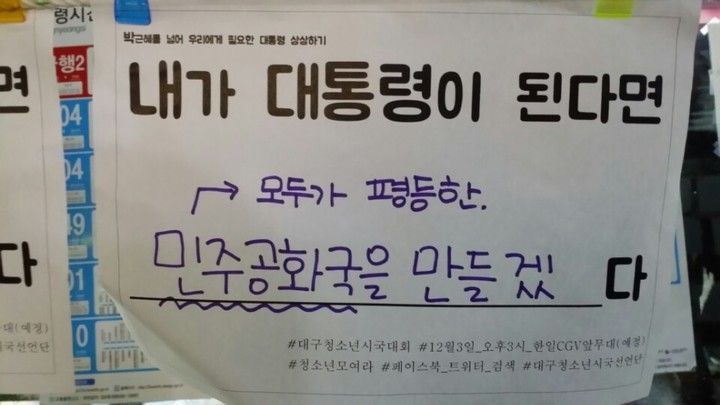 박근혜를 넘어 우리에게 필요한 대통령 상상하기
내가 대통령이 된다면
→ 모두가 평등한.
민주공화국을 만들겠다
#대구청소년시국대회 #12월3일_오후3시_한일CGV앞무대(예정)
#청소년모여라 #페이스북_트위터_검색 #대구청소년시국선언단
면
다
대(예정)
시국선언단
령시
행2
04
04
49
01
0